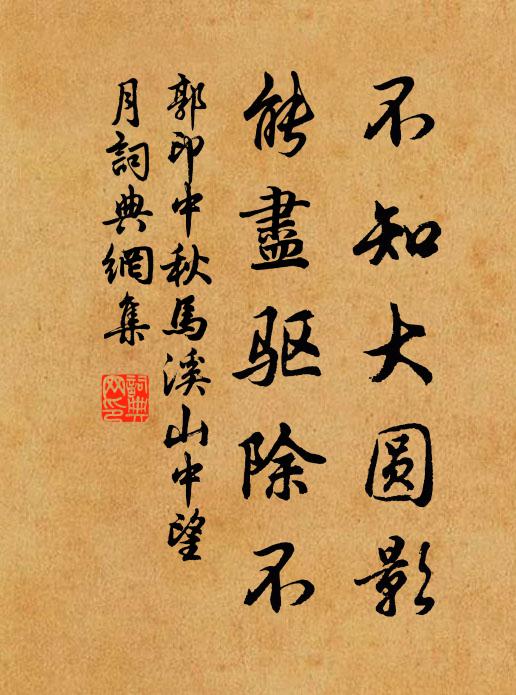 不知大圆影
能盡驱除不
郭印中秋馬溪山中望
月詞典網集
詞典
网印